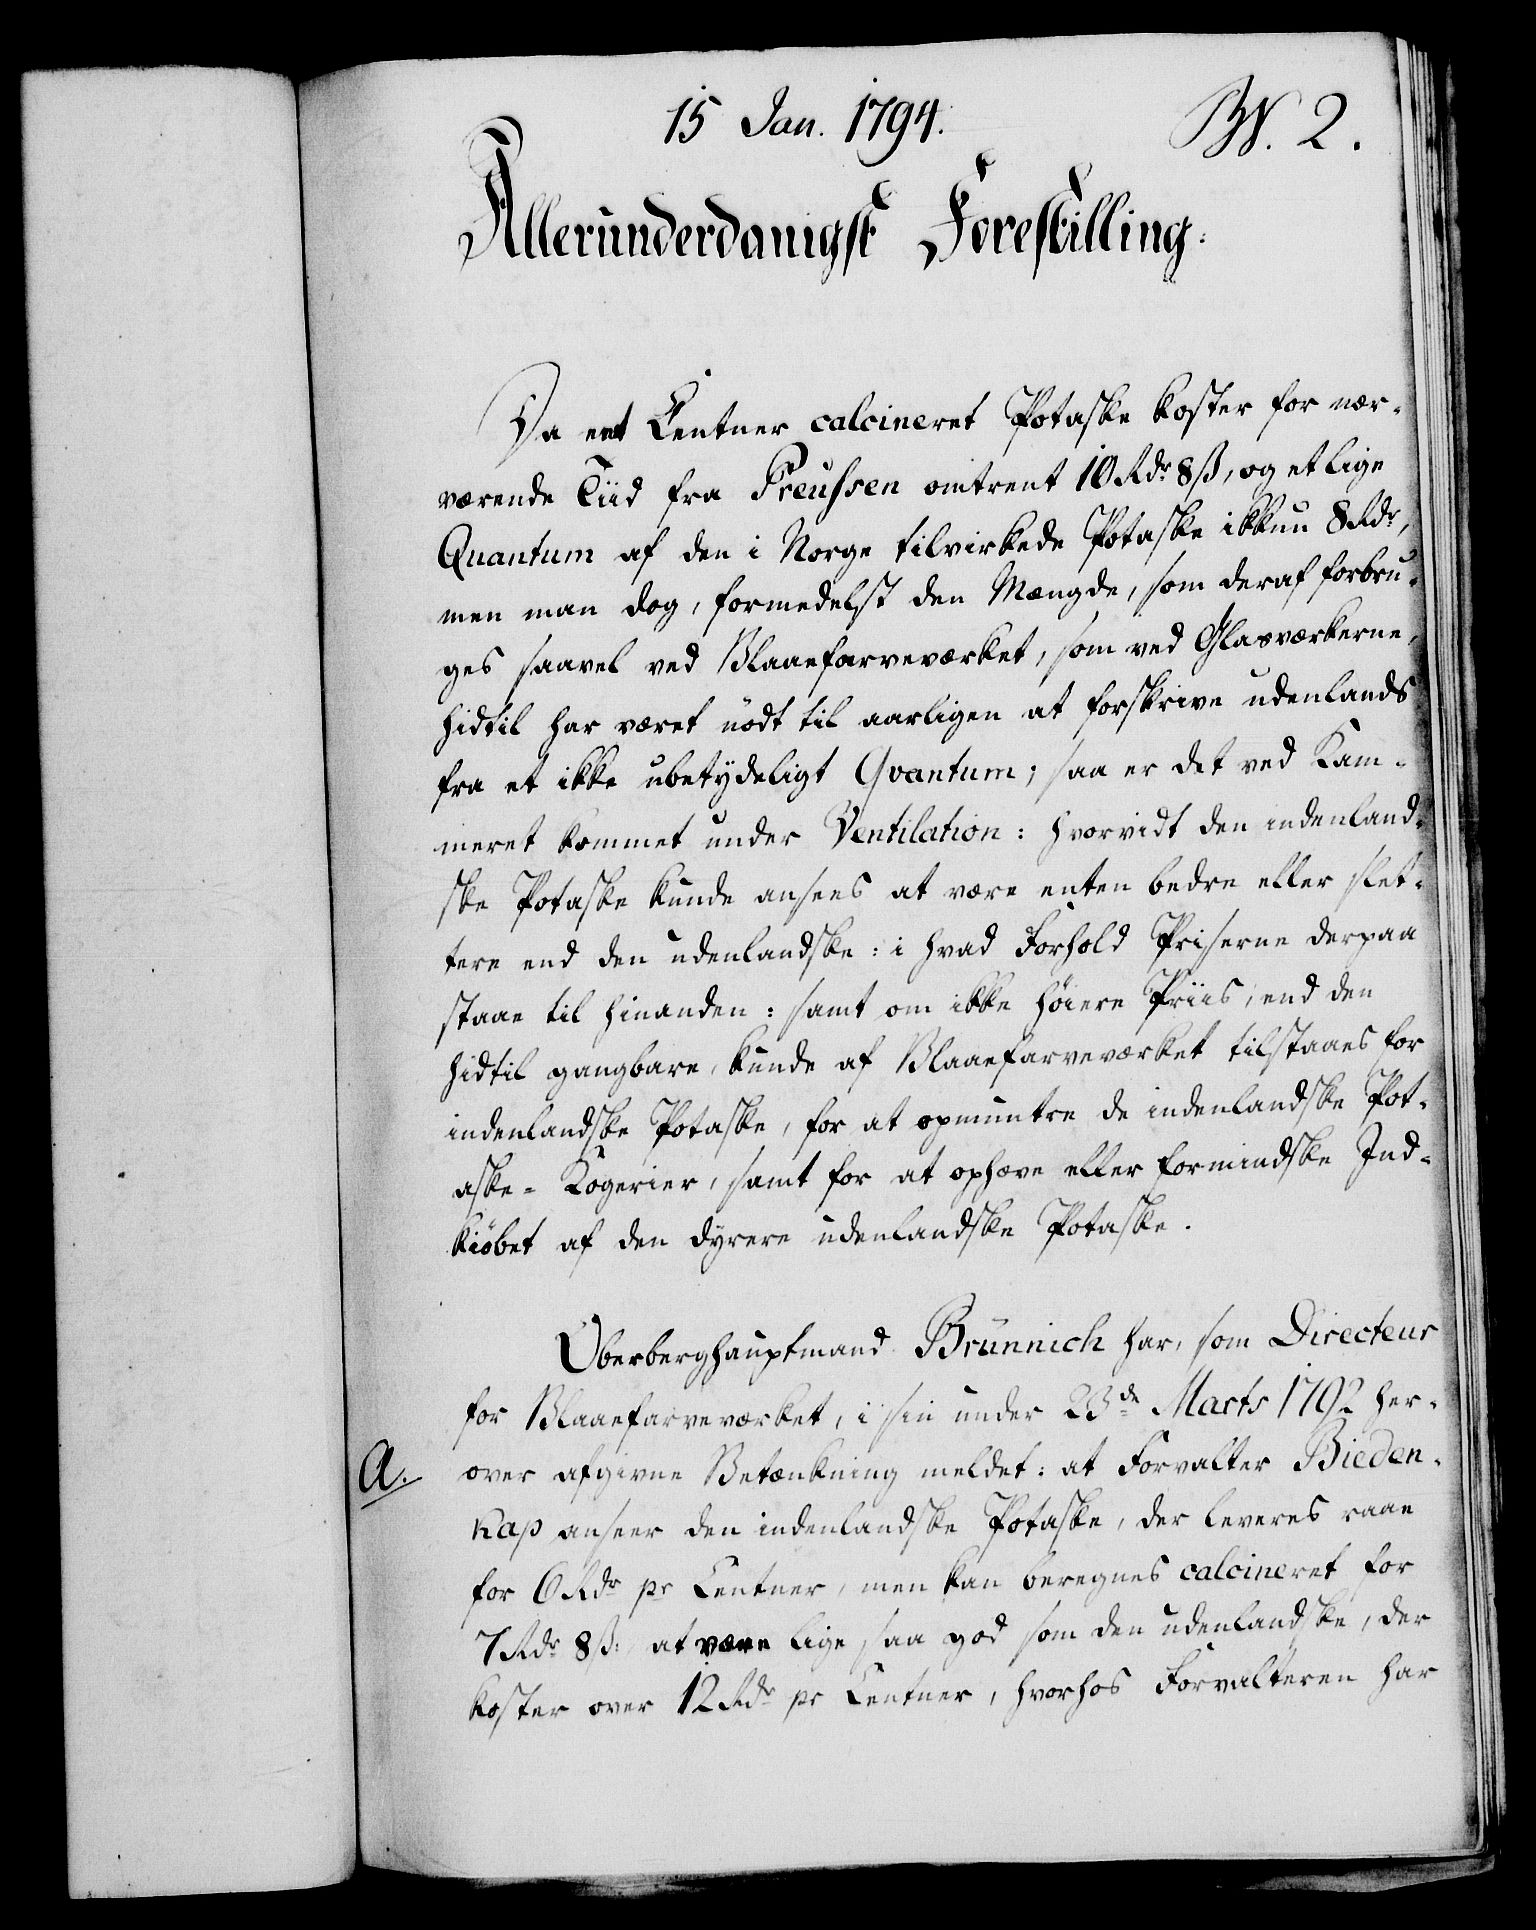 15 Jan. 1794.
N. 2.
Allerunderdanigst Forestilling:
Da eet Centner calcineret Potaske koster for nær-
værende Tiid fra Preussen omtrent 10 Rdr 8 ß, og et lige
Quantum af den i Norge tilvirkede Potaske ikkun 8 Rdr,
men man dog, formedelst den Mængde, som deraf forbru-
ges saavel ved Blaaefarveværket, som ved Glasværkerne,
hidtil har været nödt til aarligen at forskrive udenlands
fra et ikke ubetydeligt Qvantum; saa er det ved Kam-
meret kommet under Ventilation: hvorvidt den indenland-
ske Potaske kunde ansees at være enten bedre eller slet-
tere end den udenlandske: i hvad Forhold Priserne derpaa
staae til hinanden: samt om ikke höiere Priis, end den
hidtil gangbare, kunde af Blaaefarveværket tilstaaes for
indenlandske Potaske, for at opmuntre de indenlandske Pot-
aske-Kogerier, samt for at ophæve eller formindske Ind-
kiöbet af den dyrere udenlandske Potaske.
Oberberghauptmand Brünnich har, som Directeur
for Blaaefarveværket, i sin under 23de Marts 1792 her-
A.
over afgivne Betænkning meldet: at Forvalter Bieden-
kap anseer den indenlandske Potaske, der leveres raae
for 6 Rdr pr Centner, men kan beregnes calcineret for
7 Rdr 8 ß: at være lige saa god som den udenlandske, der
koster over 12 Rdr pr Centner, hvorhos Forvalteren har